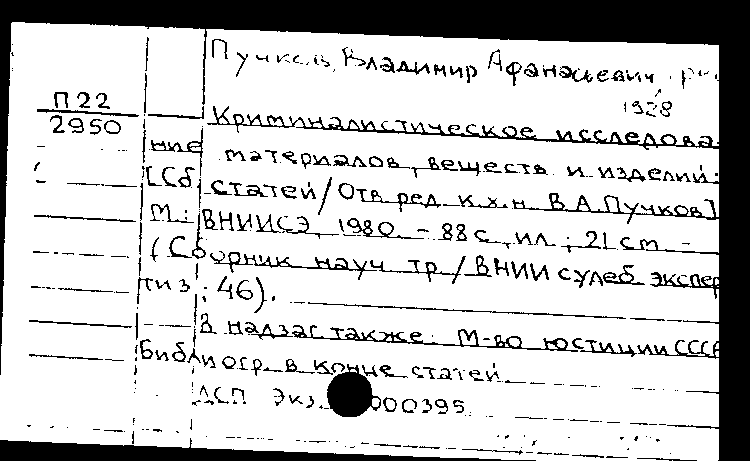 Пучков, Владимир Афанасьевич
1928
П22
2950
Криминалистическое исследова
ние материалов, веществ и изделий:
[Сб. статей / Отв. ред. к.х.н. В.А.Пучков]
М.: ВНИИСЭ, 1980. - 88 с., ил.; 21 см. -
(Сборник науч. тр. / ВНИИ судеб. экспер
тиз; 46).
В надзаг. также: М-во юстиции СССР
Библиогр. в конце статей.
ДСП Экз. 000395